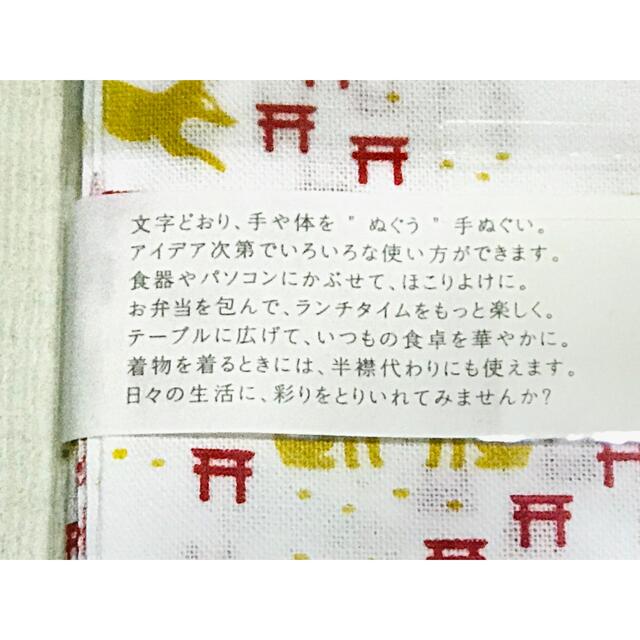 文字どおり、手や体を " ぬぐう " 手ぬぐい。
アイデア次第でいろいろな使い方ができます。
食器やパソコンにかぶせて、ほこりよけに。
お弁当を包んで、ランチタイムをもっと楽しく。
テーブルに広げて、いつもの食卓を華やかに。
着物を着るときには、半襟代わりにも使えます。
日々の生活に、彩りをとりいれてみませんか?